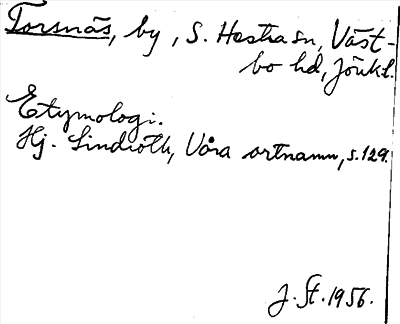 Torsnäs, by, S. Hestra sn, Väst-
bo hd, Jönk l.
Etymologi.
Hj. Lindroth, Våra ortnamn, s. 129.
J. St. 1956.